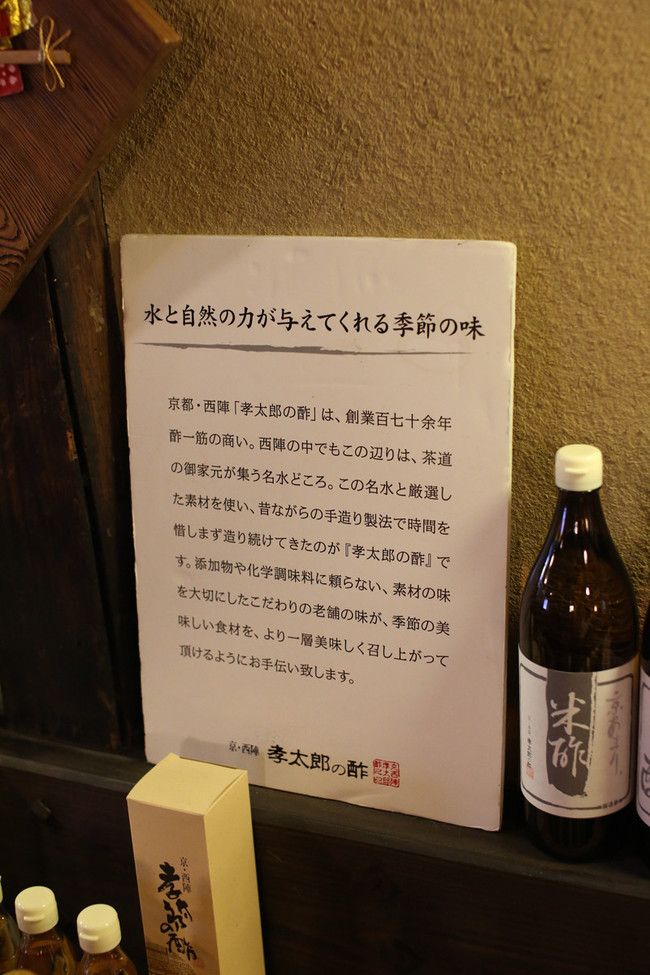 水と自然の力が与えてくれる季節の味
京都・西陣「孝太郎の酢」は、創業百七十余年
酢一筋の商い。西陣の中でもこの辺りは、茶道
の御家元が集う名水どころ。この名水と厳選し
た素材を使い、昔ながらの手造り製法で時間を
惜しまず造り続けてきたのが『孝太郎の酢』で
す。添加物や化学調味料に頼らない、素材の味
を大切にしたこだわりの老舗の味が、季節の美
味しい食材を、より一層美味しく召し上がって
頂けるようにお手伝い致します。
京・西陣 孝太郎の酢
京・西陣
孝太郎の酢
米酢